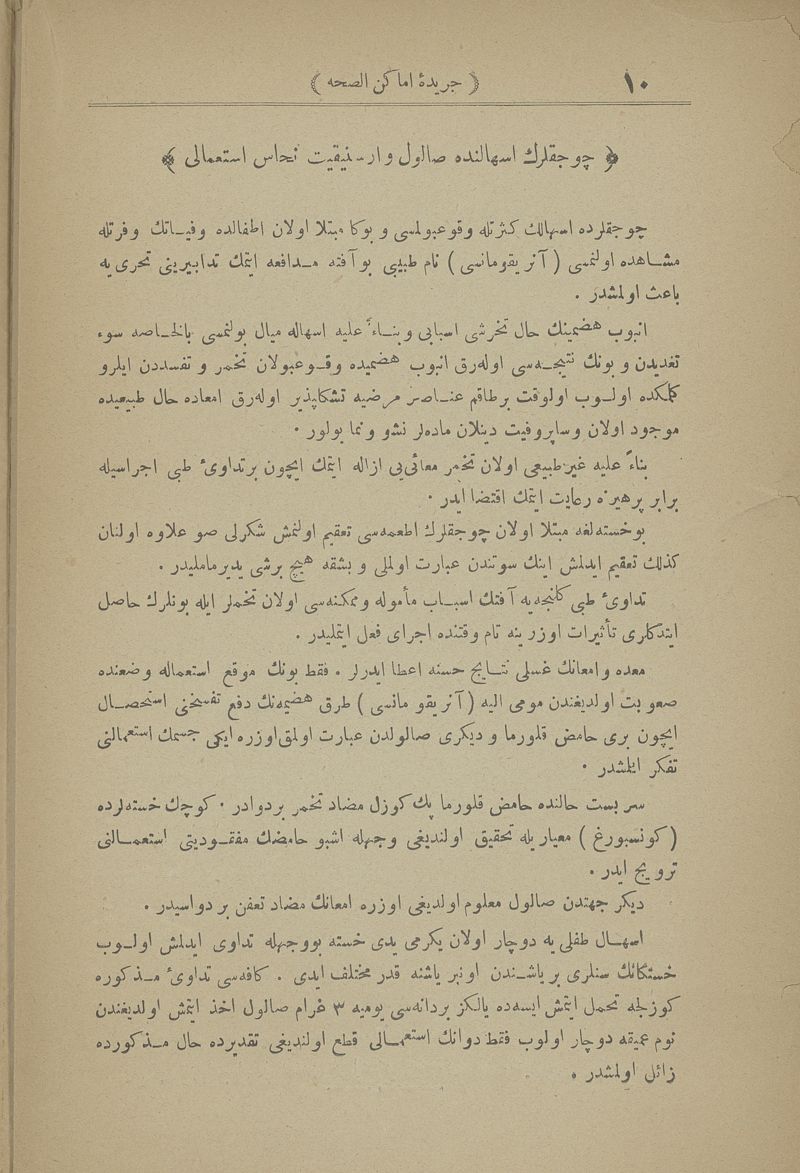 ١٠
﴿ جريدهٔ اماكن الصحه ﴾
﴿ چوجقلرك اسهالنده صالول وارسنيقيت نحاس استعمالى ﴾
چوجقلرده اسهالك كثرتله وقوعبولمسى و بوكا مبتلا اولان اطفالده وفياتك وفرتله
مشاهده اولنمسى ( آنريقومانسى ) نام طبيبى بوآفته مدافعه ايتمك تدابيرينى تحرى يه
باعث اولمشدر .
انبوب هضمينك حال تخرشى اسبابى وبناءً عليه اسهاله ميال بولنمسى بالخاصه سوء
تغديدن و بونك نتيجه‌سى اوله‌رق انبوب هضميده وقوعبولان تخمر و تفسددن ايلرو
كلمكده اولوب اولوقت برطاقم عناصر مرضيه تشكل‌پذير اوله‌رق امعاده حال طبيعيده
موجود اولان وساپروفيت دينلان ماده‌لر نشو ونما بولور .
بناءً عليه غيرطبيعى اولان تخمر معائى‌يى ازاله ايتمك ايچون برتداوىٔ طبى اجراسيله
برابر پرهيزه رعايت ايتمك اقتضا ايدر .
بوخسته‌لغه مبتلا اولان چوجقلرك اطعمه‌سى تعقيم اولنمش شكرلى صو علاوه اولنان
كذلك تعقيم ايدلمش اينك سوتندن عبارت اولملى و بشقه هيچ برشى يديرمامليدر .
تداوىٔ طبى كلنجه‌يه آفتك اسباب مأموله وممكنه‌سى اولان تخمرلر ايله بونلرك حاصل
ايتدكلرى تأثيرات اوزرينه تام وقتنده اجراى فعل ايتمليدر .
معده وامعانك غسلى نتايج حسنه اعطا ايدرلر . فقط بونك موقع استعماله وضعنده
صعوبت اولديغندن مومى اليه ( آنريقو مانسى ) طرق هضميه‌نك دفع تفسخنى استحصال
ايچون برى حامض قلورما و ديكرى صالولدن عبارت اولمق‌اوزره ايكى جسمك استعمالنى
تفكر ايلمشدر .
سربست حالنده حامض قلورما پك كوزل مضاد تخمر بردوادر . كوچك خسته‌لرده
( كونسبورغ ) معياريله تحقيق اولنديغى وجهله اشبو حامضك مفقوديتى استعمالنى
ترويج ايدر .
ديكر جهتدن صالول معلوم اولديغى اوزره امعانك مضاد تعفن بر دواسيدر .
اسهال طفلى‌يه دوچار اولان يكرمى يدى خسته بووجهله تداوى ايدلمش اولوب
خستكانك سنلرى برياشندن اونبر ياشنه قدر مختلف ايدى . كافه‌سى تداوىٔ مذكوره
كوزلجه تحمل ايتمش ايسه‌ده يالكز بردانه‌سى يوميه ٣ غرام صالول اخذ ايتمش اولديغندن
نوم عميقه دوچار اولوب فقط دوانك استعمالى قطع اولنديغى تقديرده حال مذكورده
زائل اولمشدر .